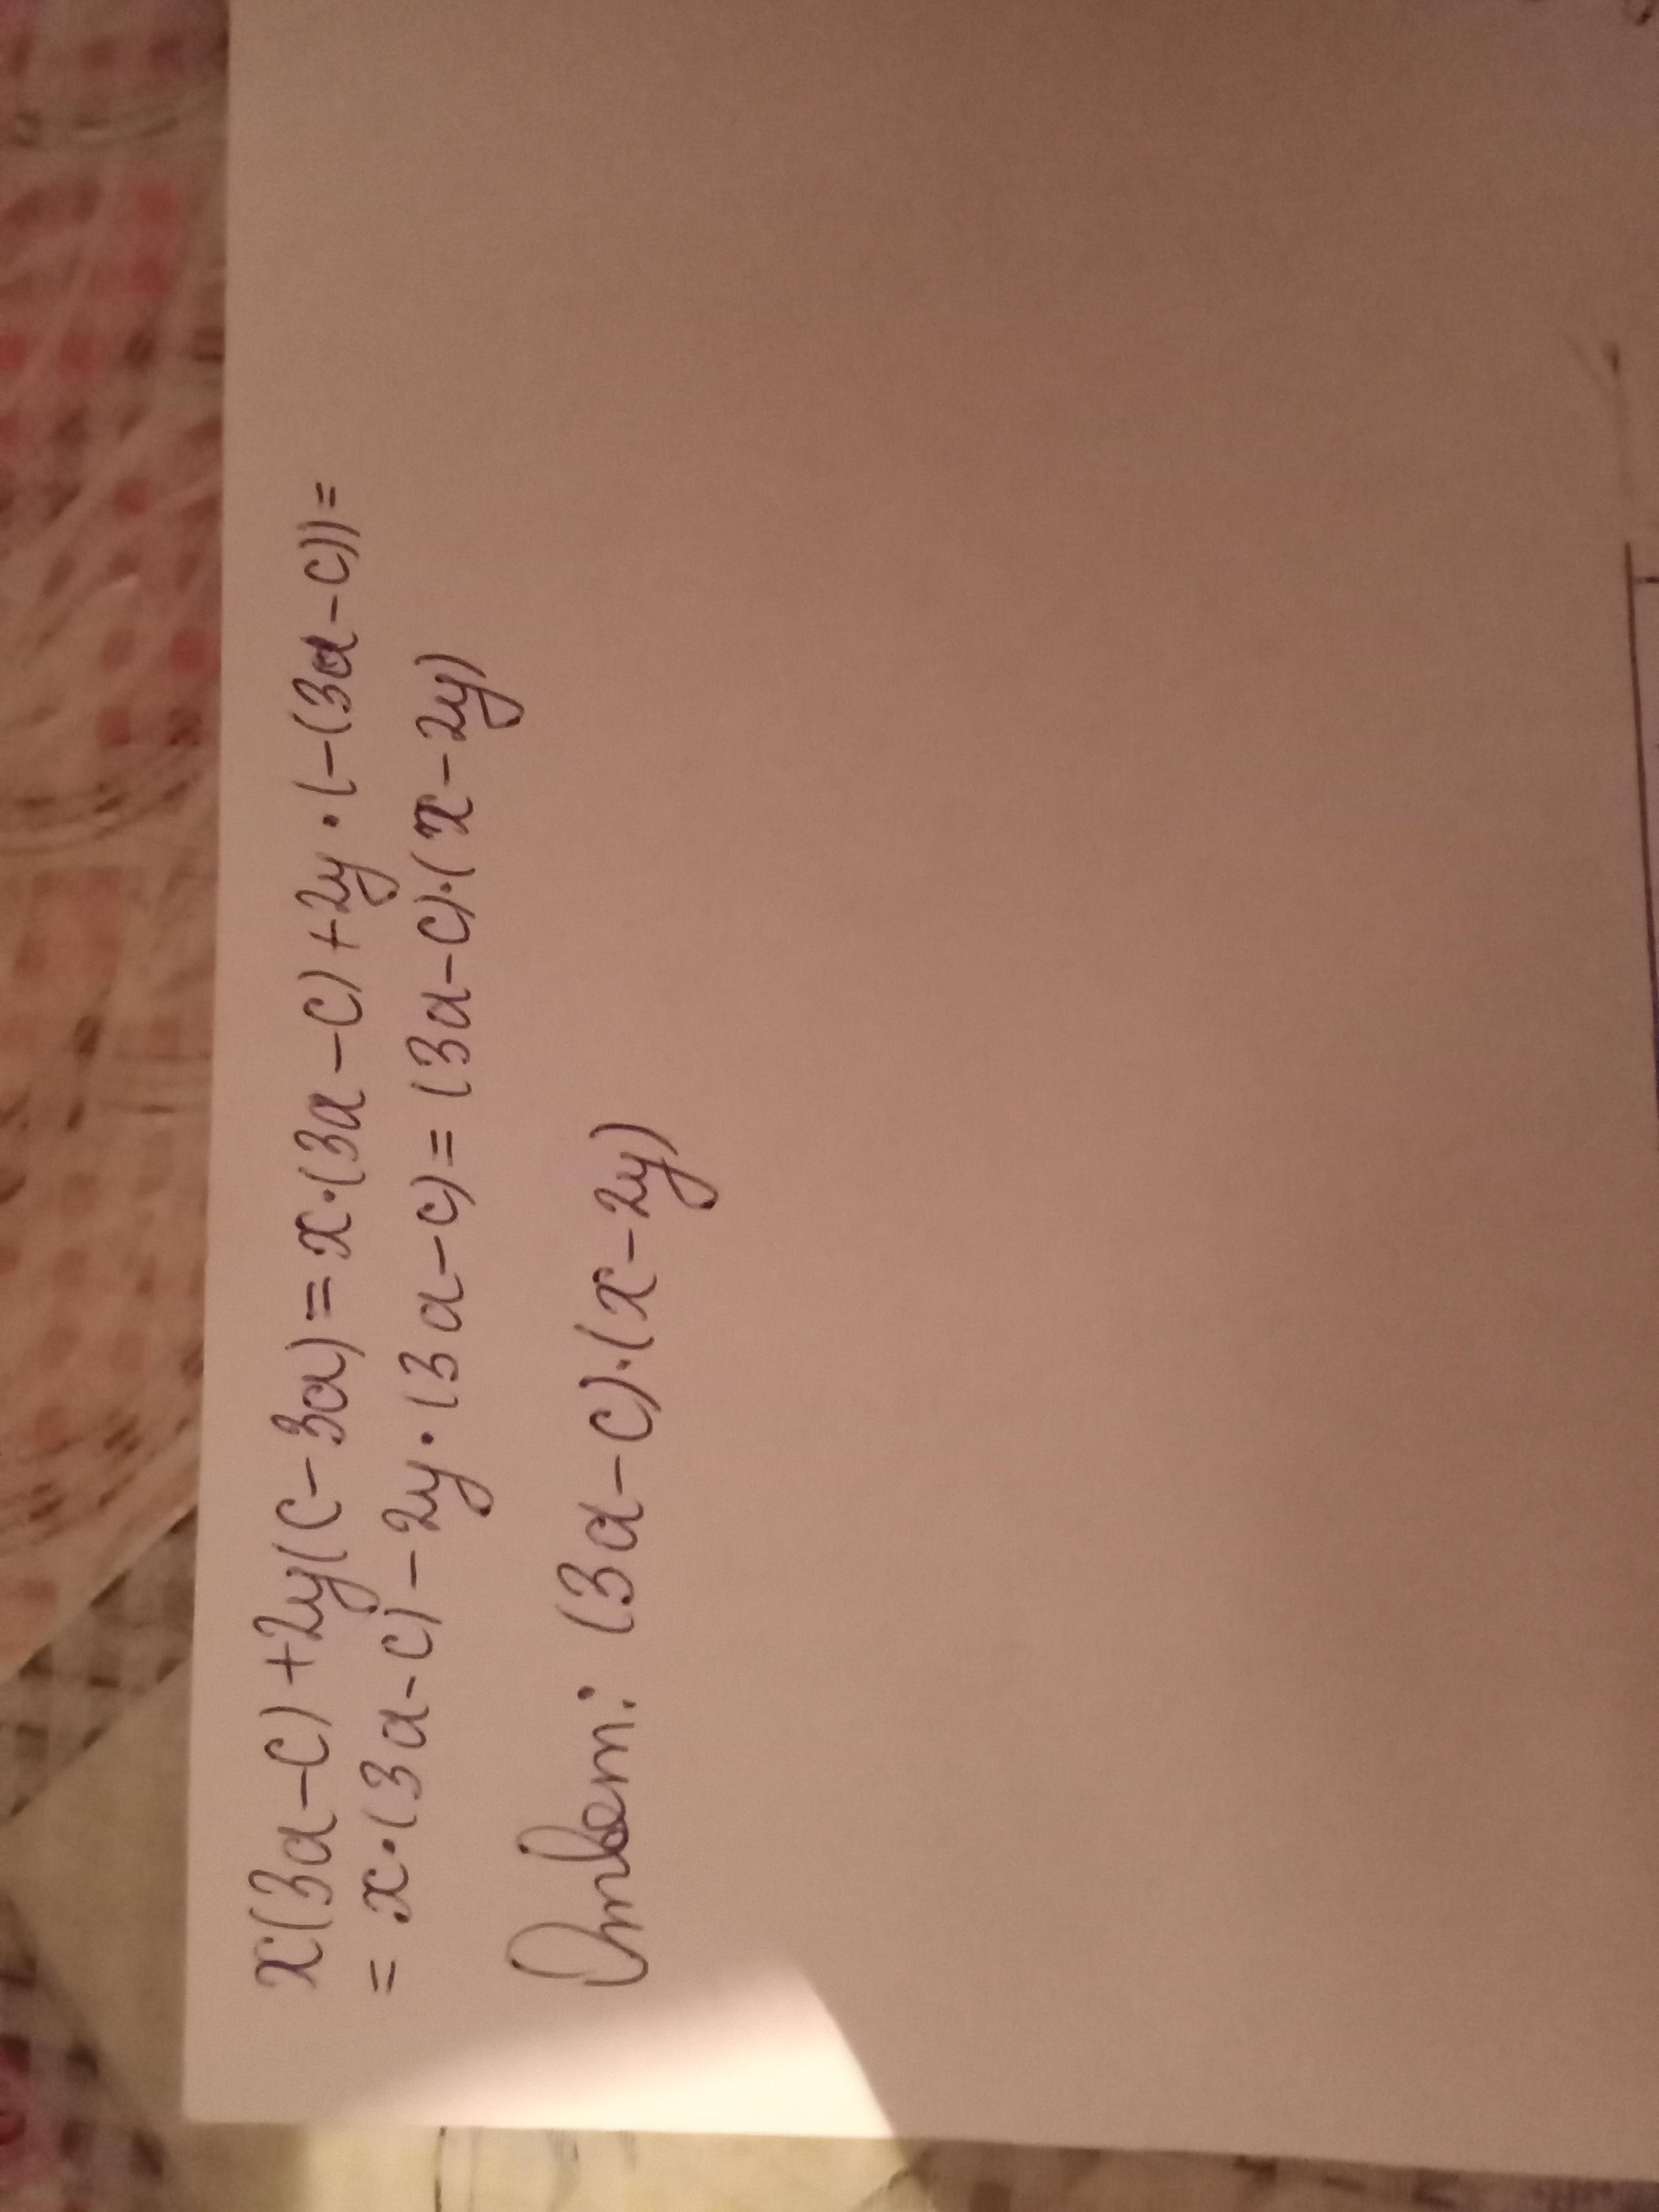 x(3a-c)+2y(c-3a)=x·(3a-c)+2y·(-(3a-c))=
=x·(3a-c)-2y·(3a-c)=(3a-c)·(x-2y)
Ответ: (3a-c)·(x-2y)